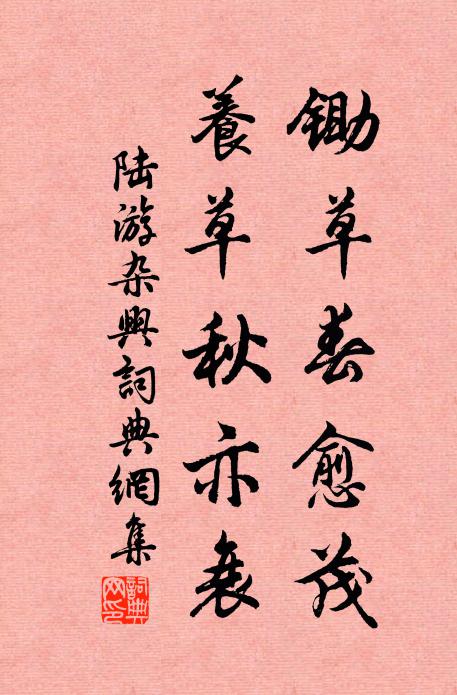 鋤草春愈茂
養草秋亦衰
陸游杂興詞典網集
詞典网印